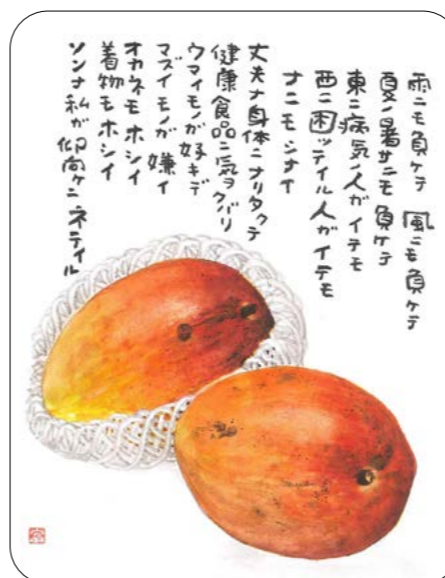 雨ニモ負ケテ 風ニモ負ケテ
夏ノ暑サニモ負ケテ
東ニ病気ノ人ガイテモ
西ニ困ッテイル人ガイテモ
ナニモシナイ
丈夫ナ身体ニナリタクテ
健康食品ニ気ヲクバリ
ウマイモノガ好キデ
マズイモノガ嫌イ
オカネモホシイ
着物モホシイ
ソンナ私が仰向ケニネテイル